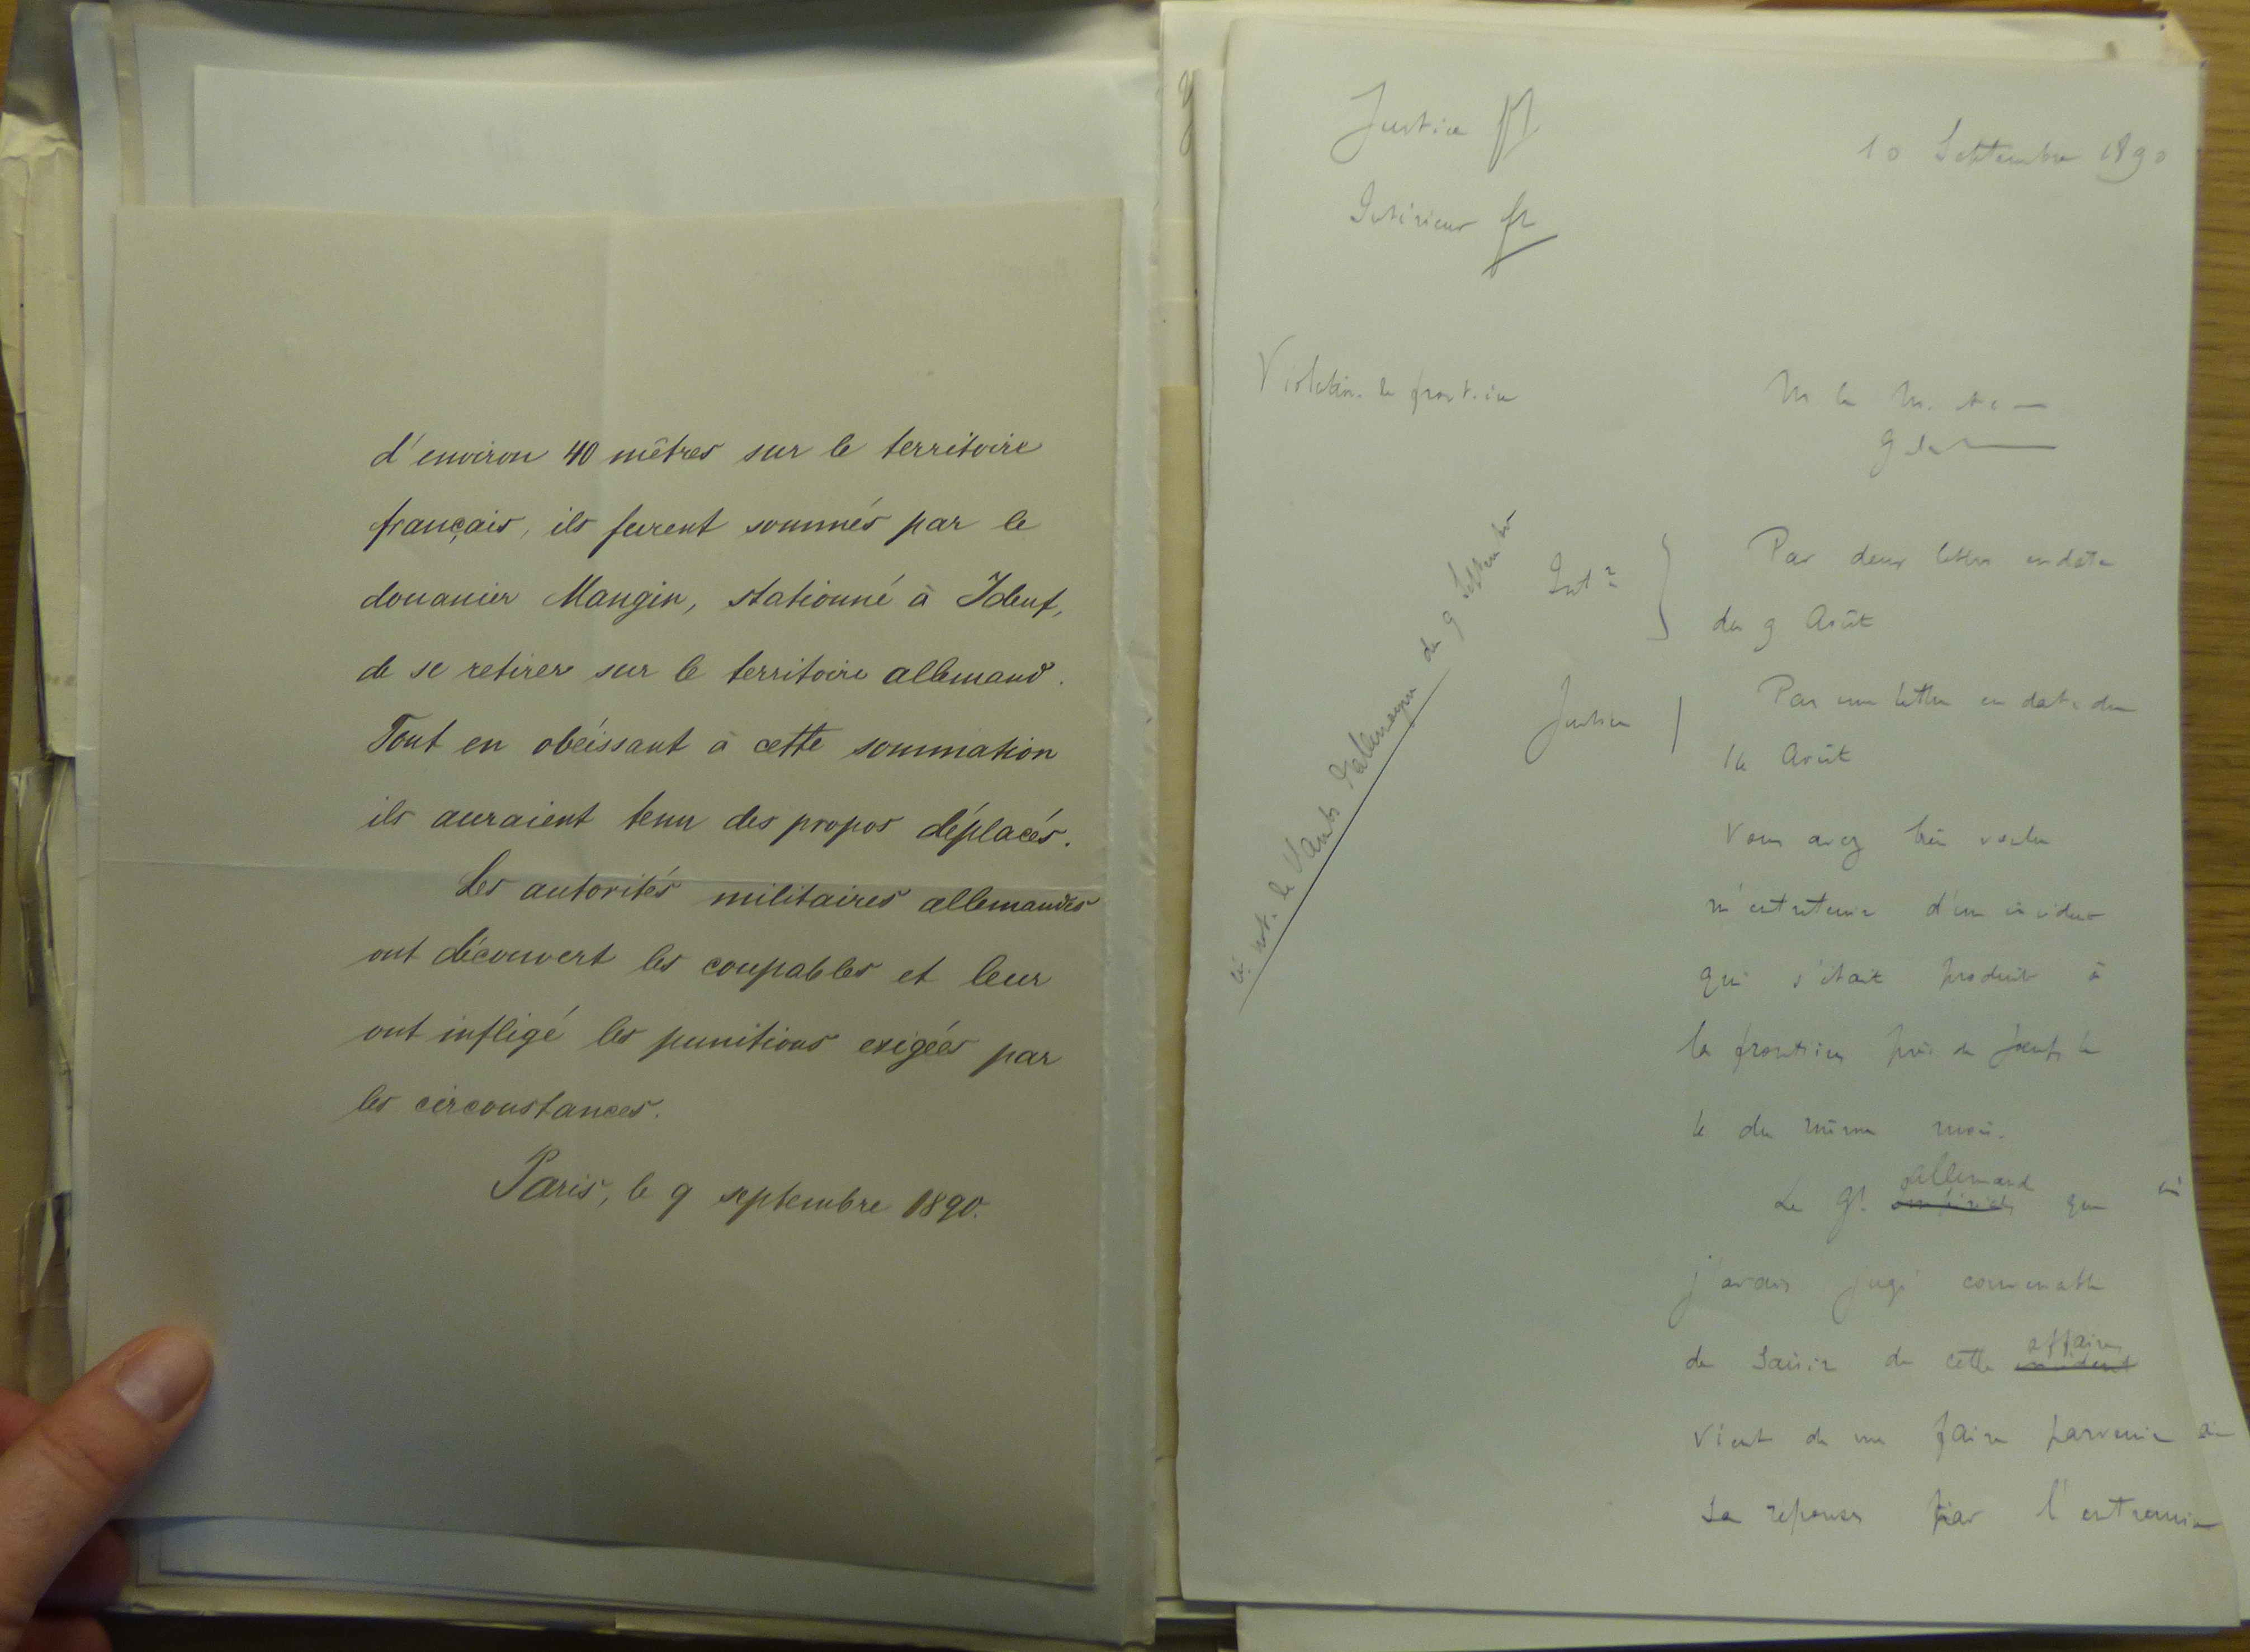 d'environ 40 mêtres sur le territoire
français, ils furent sommés par le
douanier Mangin, stationné à Joeuf,
de se retirer sur le territoire allemand.
Tout en obéissant à cette sommation
ils auraient tenu des propos déplacés.
Les autorités militaires allemandes
ont découvert les coupables et leur
ont infligé les punitions exigées par
les circonstances.
Paris, le 9 septembre 1890.
Justice
Intérieur
10 Septembre 1890
Violation de frontière
M le M.
du 9 Septembre
not. de l'Amb. d'Allemagne
Intr
Par deux lettres en date
du 9 Août
Justice
Par une lettre en date du
Août
Vous avez bien voulu
m'entretenir d'un incident
qui s'était produit à
la frontière près de Joeuf, le
du même mois.
Le Gt allemand que
j'avais jugé convenable
de saisir de cette affaire incident
vient de me faire parvenir
sa réponse par l'entremise